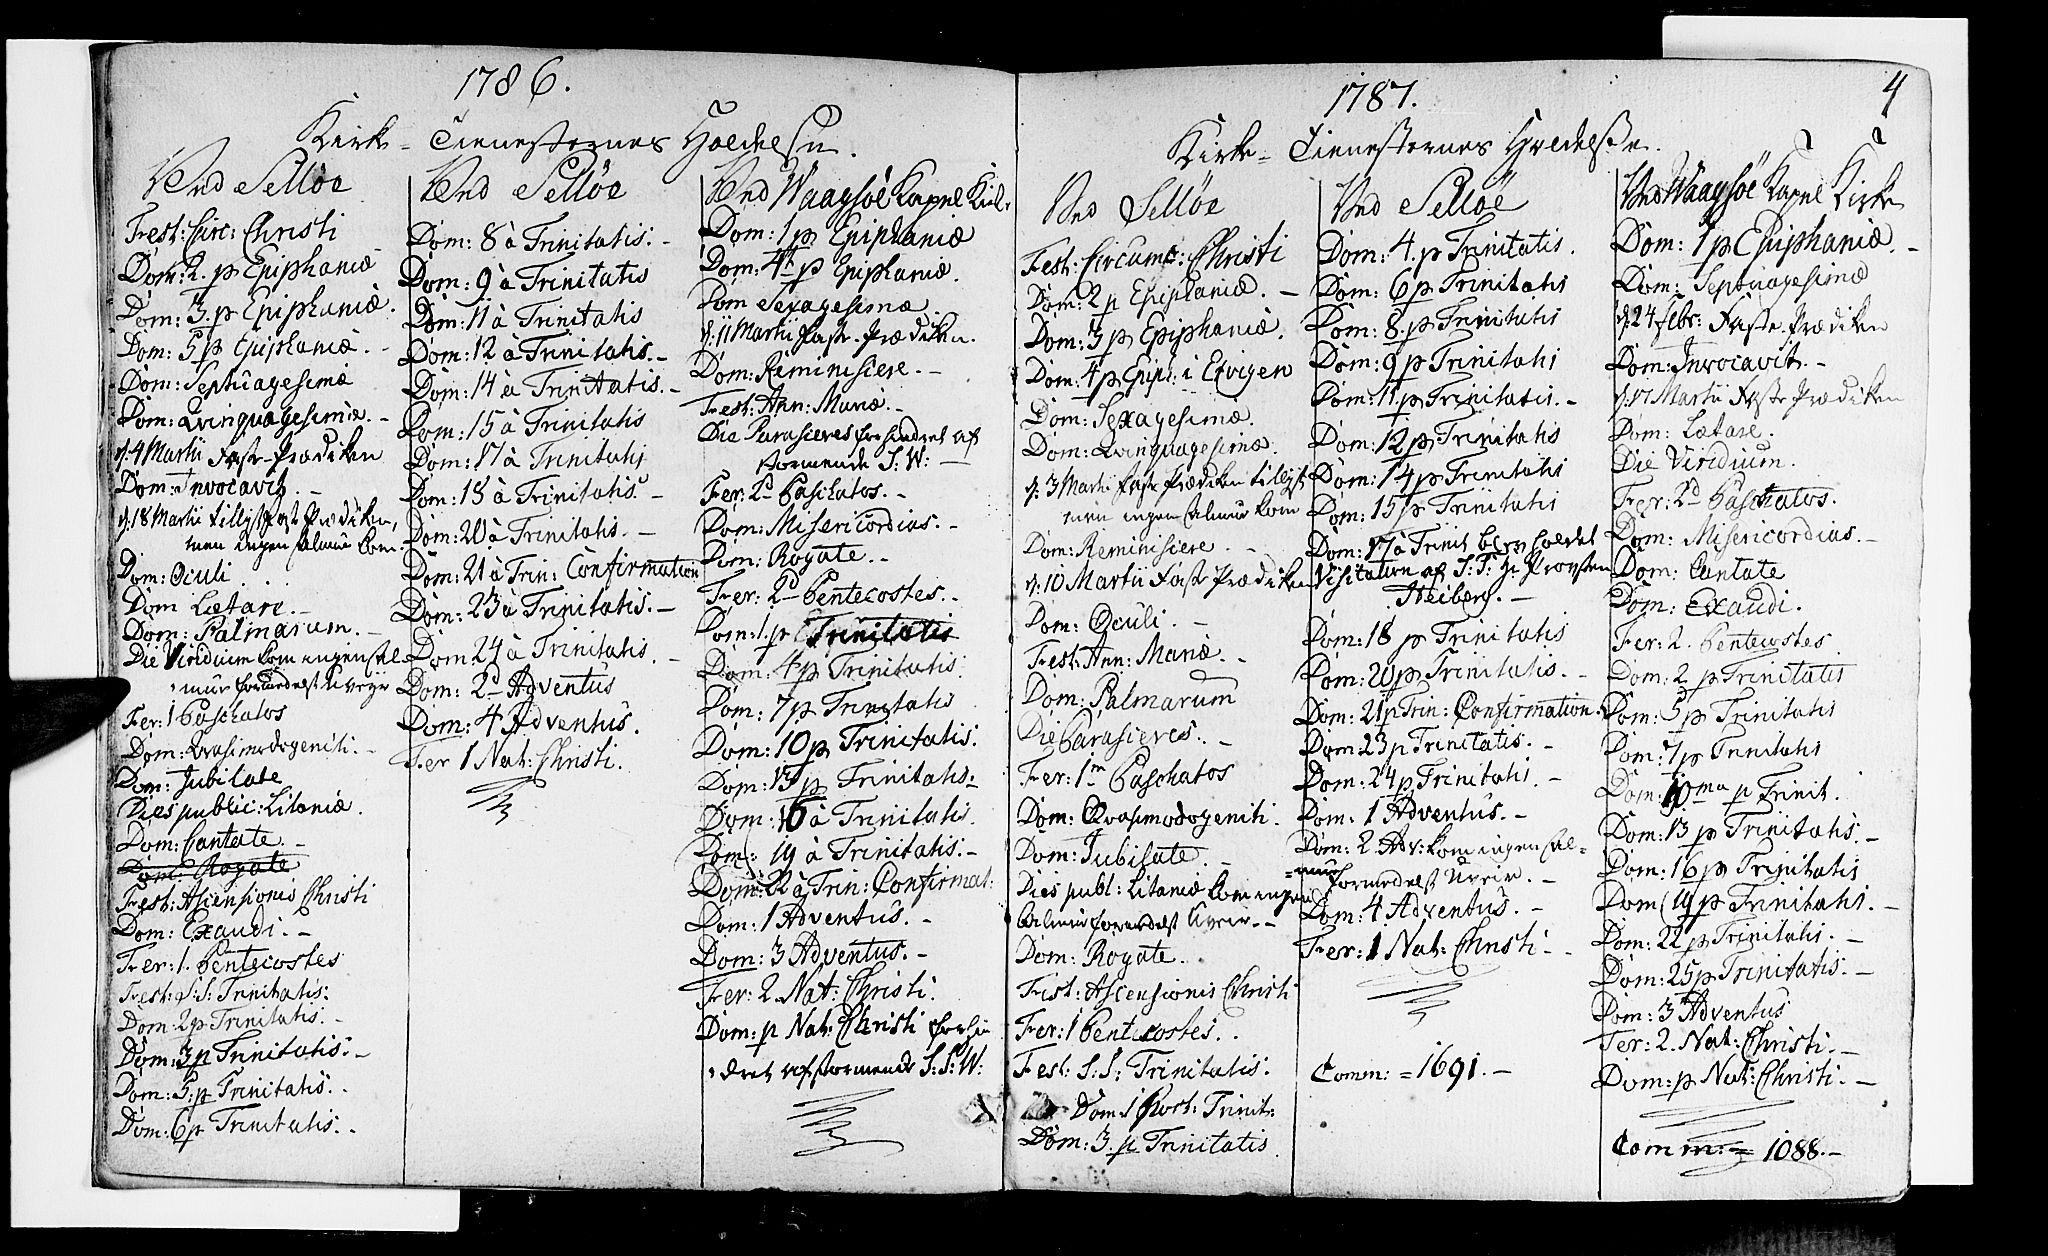 1786.
Kirke-Tienesternes Holdelse.
Ved Selløe
Fest: Circ: Christi
Dom: 2. p Epiphaniæ
Dom: 3. p Epiphaniæ.
Dom: 5 p Epiphaniæ. -
Dom: Septuagesimæ
Dom: Qvinqvagesimæ. -
d: 4 Martii Faste-Prædiken
Dom: Invocavit. -
d: 18 Martii tillyst Fast Prædiken,
men ingen Almue kom.
Dom: Oculi . . .
Dom Lætare. -
Dom: Palmarum. -
Die Viridium kom ingen Al-
mue formedelst Uveyr
Fer: 1 Paschatos
Dom: Qvasimodogeniti. -
Dom: Jubilate
Dies public: Litaniæ.
Dom: Cantate. -
Dom: Rogate
Fest: Ascensionis Christi
Dom: Exaudi. -
Fer: 1. Pentecostes
Fest: S: S: Trinitatis:
Dom: 2 p Trinitatis. -
Dom: 3 p Trinitatis: -
Dom: 5: p Trinitatis. .
Dom: 6 p Trinitatis. -
Ved Selløe
Dom: 8 à Trinitatis. -
Dom: 9 à Trinitatis
Dom: 11 à Trinitatis
Dom: 12 à Trinitatis. -
Dom: 14 à Trinitatis. -
Dom: 15 à Trinitatis
Dom: 17 à Trinitatis
Dom: 18 à Trinitatis. -
Dom: 20 à Trinitatis. -
Dom: 21 à Trin: Confirmation
Dom: 23 à Trinitatis. -
Dom 24 à Trinitatis. -
Dom: 2d Adventus
Dom: 4 Adventus.
Fer 1 Nat: Christi.
Ved Waagsøe Kapel Kirk.
Dom: 1 p Epiphaniæ
Dom: 4 p Epiphaniæ.
Dom Sexagesimæ
d: 11 Martii Fast-Prædiken.
Dom: Reminisiere. -
Fest: Ann: Mariæ. -
Die Parasieves forhindret af
stormende S: W: -
Fer: 2d Paschatos. -
Dom: Misericordias. -
Dom: Rogate. -
Fer: 2d Pentecostes. -
Dom: 1. p Trinitatis
Dom: 4 p Trinitatis.
Dom: 7 p Trinitatis
Dom: 10 p Trinitatis.
Dom: 13 p Trinitatis: -
Dom: 16 à Trinitatis.
Dom: 19 à Trinitatis. -
Dom: 22 à Trin: Confirmat:
Dom: 1 Adventus. -
Dom: 3 Adventus. -
Fer: 2 Nat: Christi.
Dom: p Nat: Christi forhin
dret af stormende S: S: W:
1787.
4
Kirke-Tienesternes Holdelse.
Ved Selløe
Fest: Circumc: Christi
Dom: 2 p Epiphaniæ. -
Dom: 3 p Epiphaniæ.
Dom: 4 p Epiph: i Eivigen
Dom: Sexagesimæ.
Dom: Qvinqvagesimæ.
d: 3 Martii Fast Prædiken tillyst
men ingen Almue kom
Dom: Reminisiere. -
d: 10 Martii Fast Prædiken
Dom: Oculi. -
Fest: Ann: Mariæ. -
Dom: Palmarum
Die Parasieves. -
Fer: 1m Paschatos
Dom: Qvasimodogeniti.
Dom: Jubilate. -
Dies publ: Litaniæ kom ingen
Almue formedelst Uveir. -
Dom: Rogate.
Fest: Ascensionis Christi
Fer: 1 Pentecostes. .
Fest: S: S: Trinitatis.
Dom: 1 Post: Trinit:
Dom: 3. p Trinitatis.
Ved Selløe
Dom: 4. p Trinitatis.
Dom: 6 p Trinitatis
Dom: 8. p Trinitatis
Dom: 9 p Trinitatis
Dom: 11 p Trinitatis. -
Dom: 12 p Trinitatis
Dom: 14 p Trinitatis
Dom: 15 p Trinitatis
Dom: 17 à Trinit blev holdet
Visitation af S: T: Hr Provsten
Heiberg. -
Dom: 18 p Trinitatis
Dom: 20 p Trinitatis. -
Dom: 21 p Trin: Confirmation.
Dom 23 p Trinitatis. -
Dom: 24 p Trinitatis. -
Dom: 1 Adventus. -
Dom: 2 Adv: kom ingen Al-
mue formedelst Uveir. -
Dom: 4 Adventus. -
Fer: 1 Nat: Christi -
Comm: = 1691. -
Ved Waagsøe Kapel Kirke
Dom: 1 p Epiphaniæ. -
Dom: Septuagesimæ
d: 24 Febr: Faste Prædiken
Dom: Invocavit. -
d: 17 Martii Faste Prædiken
Dom: Lætare.
Die Viridium.
Fer: 2d Paschatos.
Dom: Misericordias. -
Dom: Cantate
Dom: Exaudi.
Fer: 2. Pentecostes
Dom: 2 p Trinitatis
Dom: 5 p Trinitatis
Dom: 7 p Trinitatis
Dom: 10ma p Trinit.
Dom: 13 p Trinitatis. -
Dom: 16 p Trinitatis
Dom 19 p Trinitatis. -
Dom: 22 p Trinitatis. -
Dom: 25 p Trinitatis. -
Dom: 3 Adventus
Fer: 2. Nat: Christi. -
Dom: p Nat: Christi. -
Comm: = 1088. -